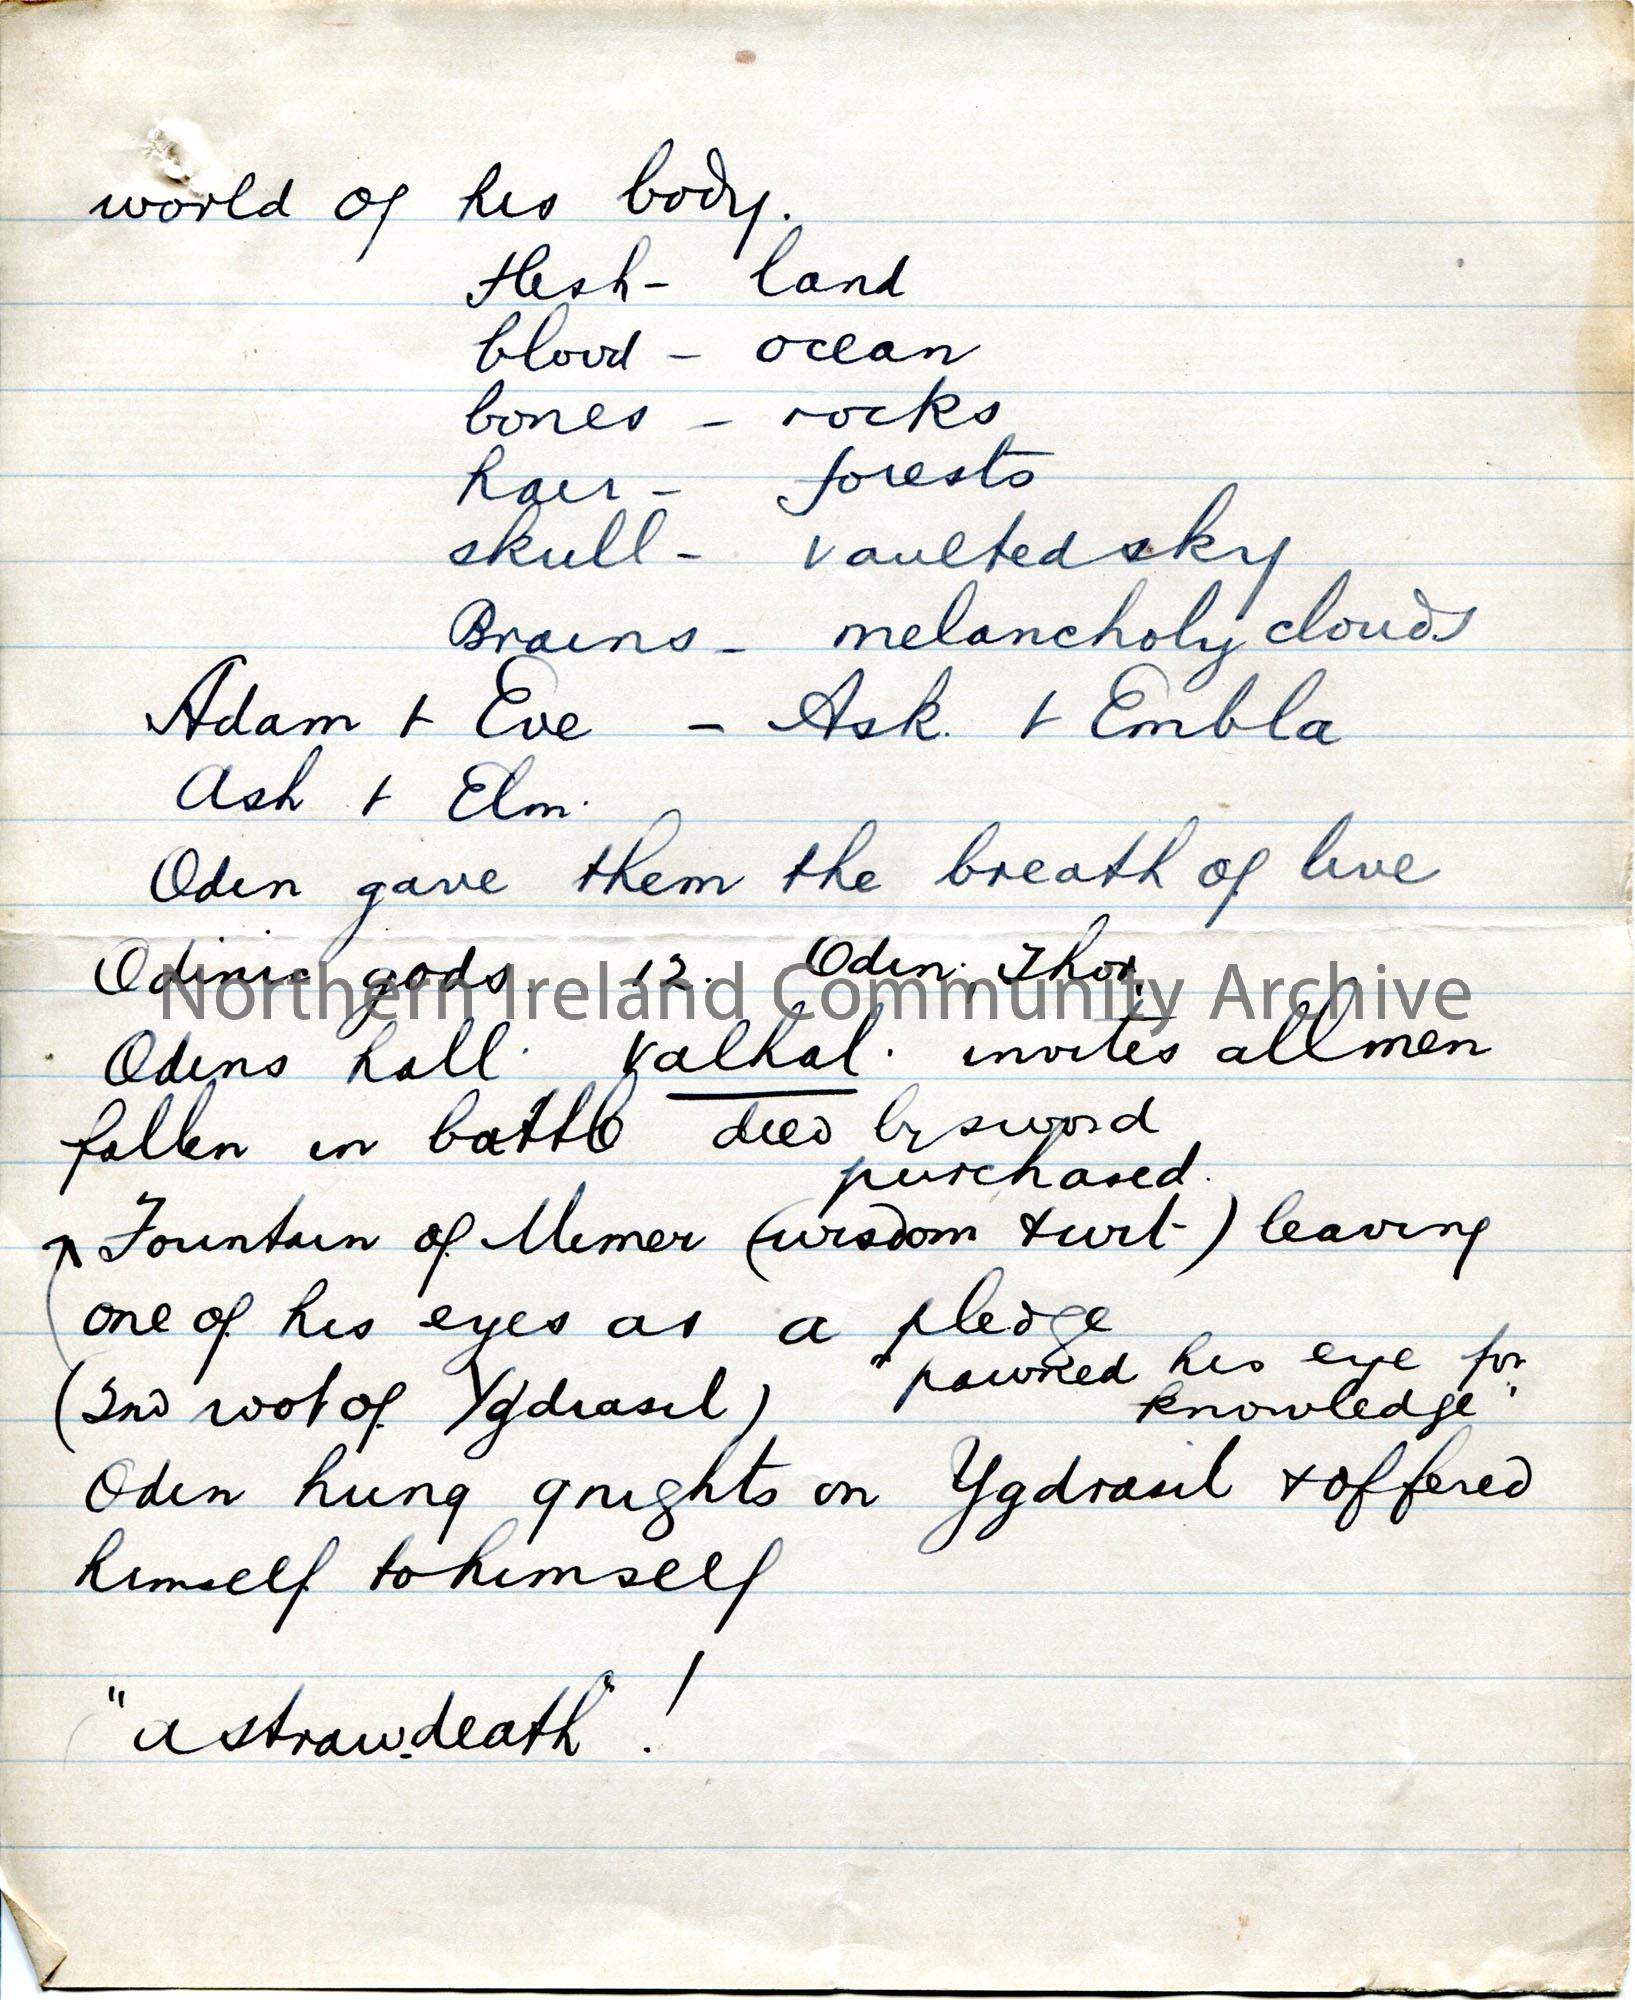 world of his body.
Flesh- land
blood - ocean
bones - rocks
hair - forests
skull - vaulted sky
Brains - melancholy clouds
Adam + Eve - Ask. + Embla
Ash + Elm.
Odin gave them the breath of live
Odinic gods. 12. Odin, Thor,
Northern Ireland Community Archive
Odins hall. Valhal. invites all men
fallen in battle died by sword
purchased.
Fountain of Mimer (wisdom + wit) leaving
one of his eyes as a pledge
"pawned his eye for
(2nd root of Ygdrasil) knowledge"
Odin hung 9 nights on Ygdrasil + offered
himself to himself
"a straw-death"!